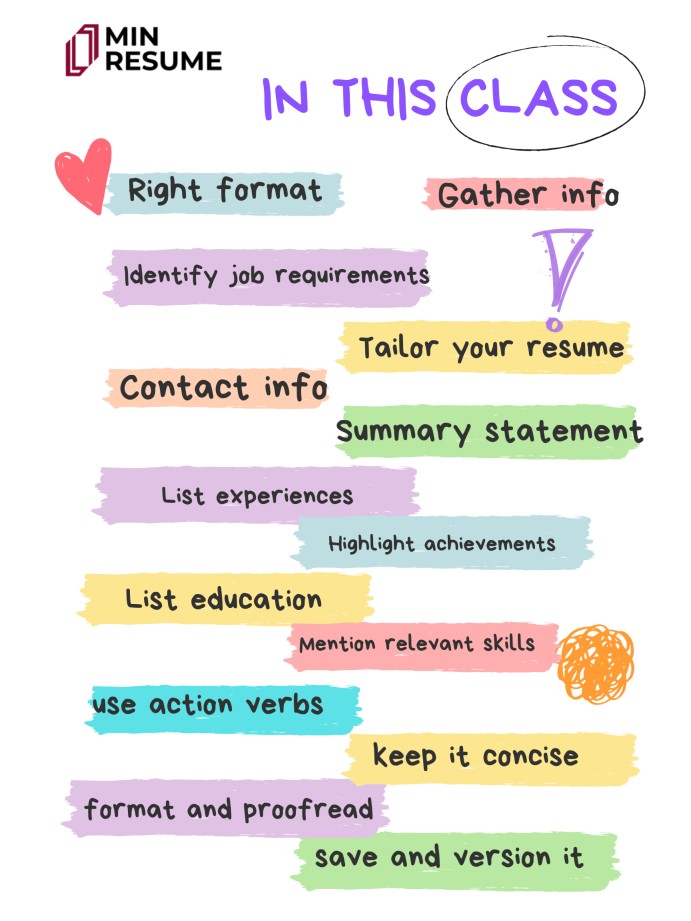 MIN
RESUME
IN THIS CLASS
Right format
Gather info
Identify job requirements
Tailor your resume
Contact info
Summary statement
List experiences
Highlight achievements
List education
Mention relevant skills
use action verbs
Keep it concise
format and proofread
save and version it